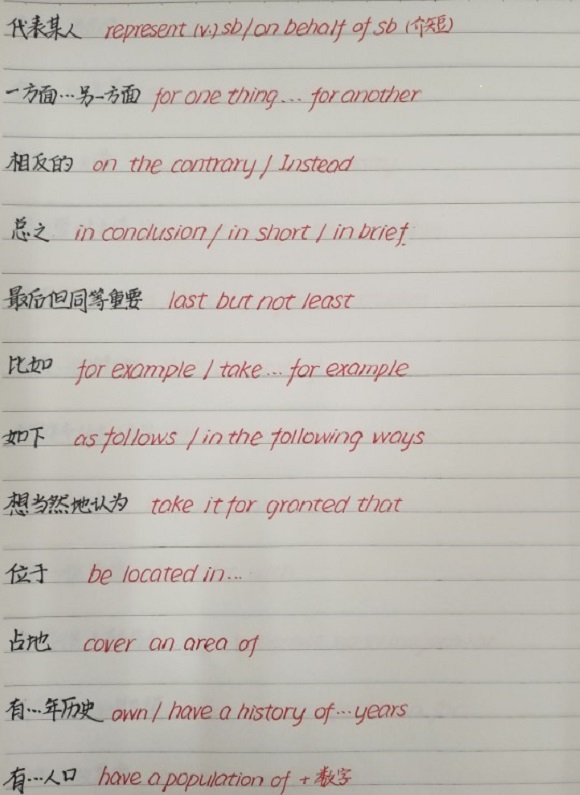 代表某人 represent (v.) sb/on behalf of sb (介短)
一方面…另一方面 for one thing... for another
相反的 on the contrary / Instead
总之 in conclusion / in short / in brief
最后但同等重要 last but not least
比如 for example / take... for example
如下 as follows / in the following ways
想当然地认为 take it for granted that
位于 be located in...
占地 cover an area of
有…年历史 own / have a history of…years
有…人口 have a population of + 数字